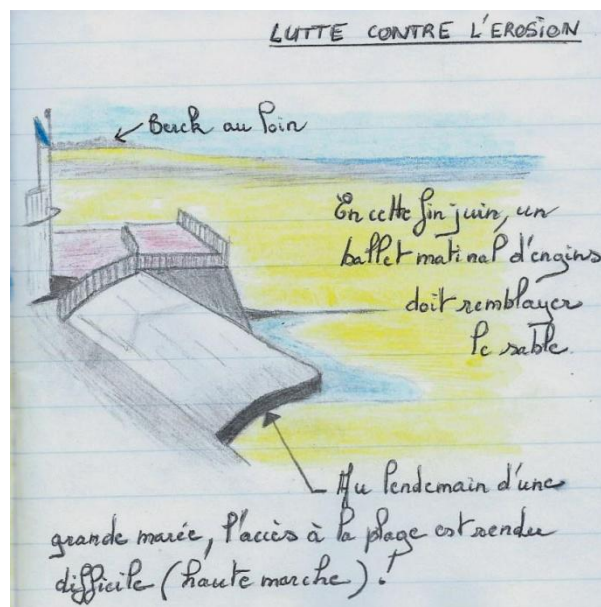 LUTTE CONTRE L'EROSION
Berck au loin
En cette fin juin, un
ballet matinal d'engins
doit remblayer
le sable
Au lendemain d'une
grande marée, l'accès à la plage est rendu
difficile (haute marche).!